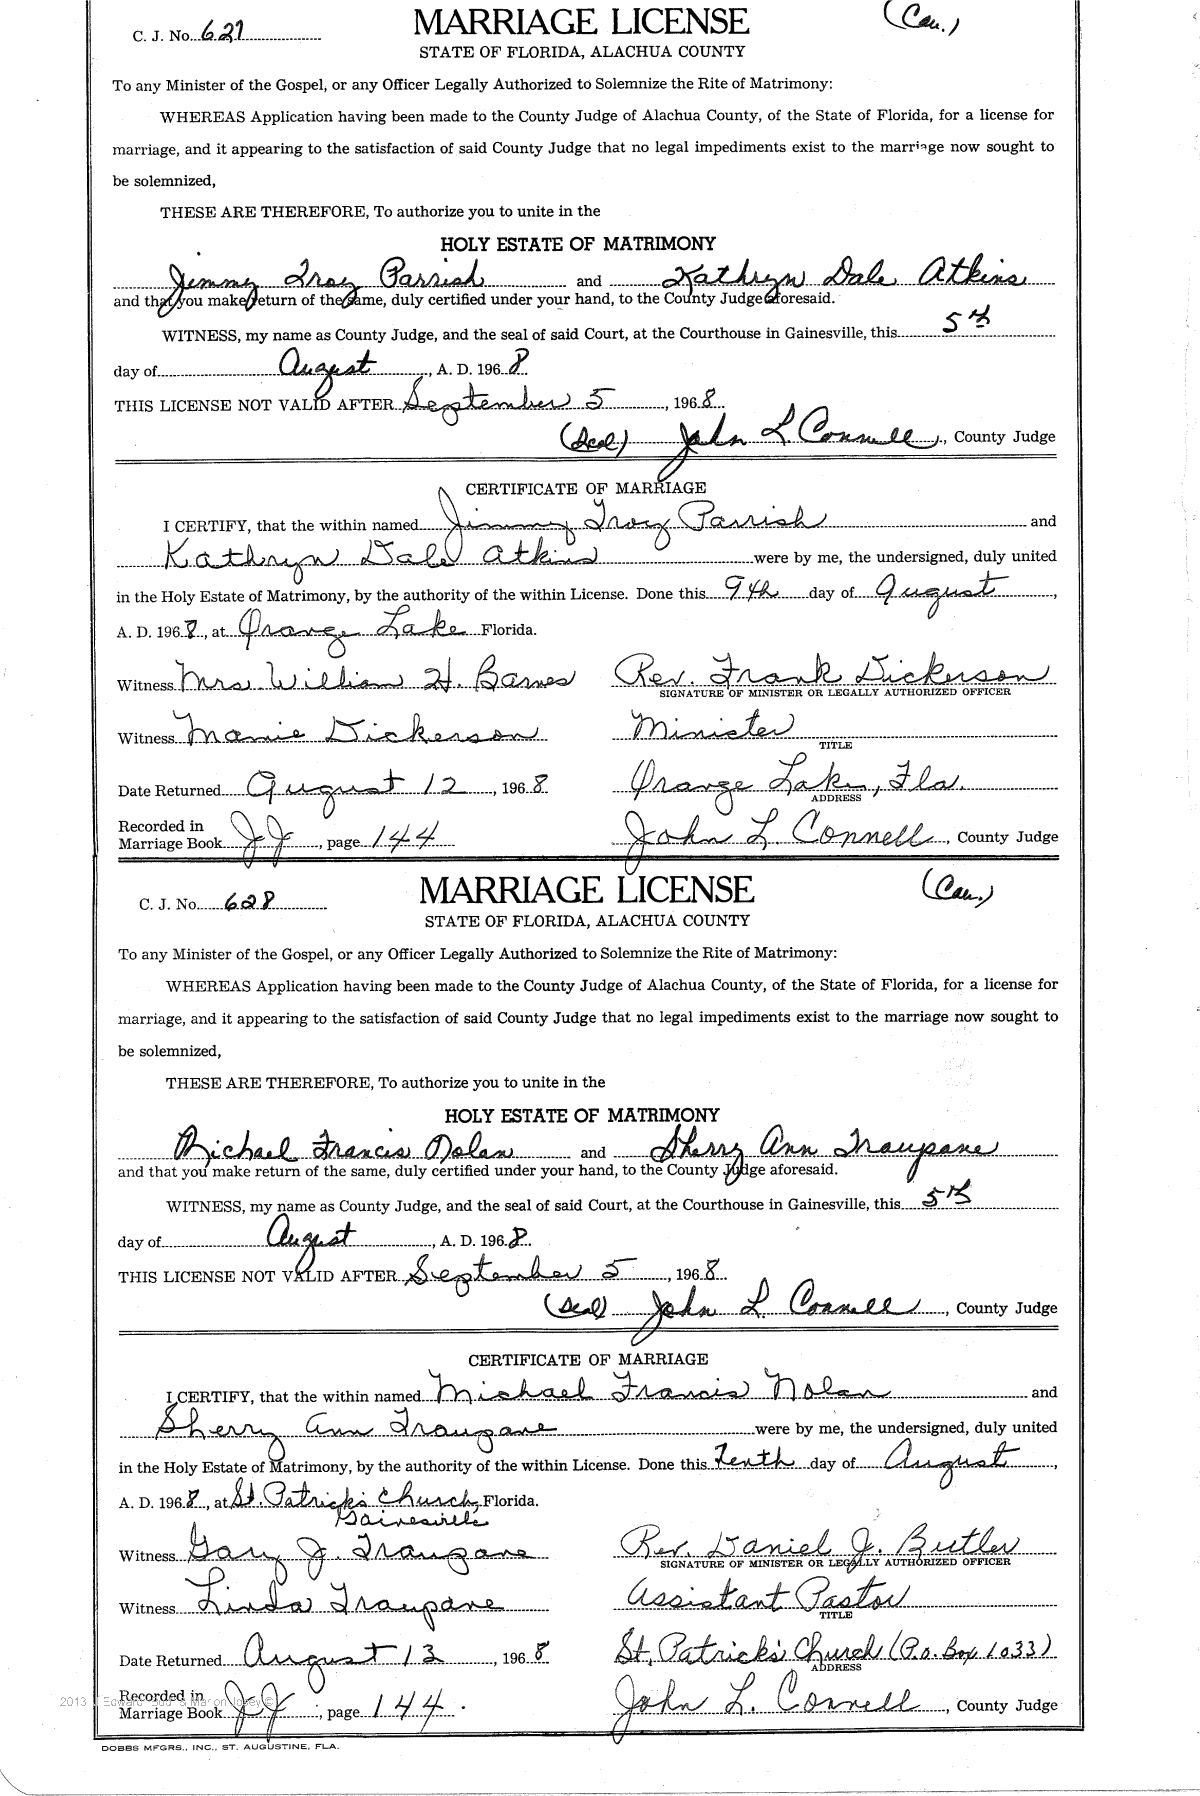 C. J. No. 627
MARRIAGE LICENSE
(Cau.)
STATE OF FLORIDA, ALACHUA COUNTY
To any Minister of the Gospel, or any Officer Legally Authorized to Solemnize the Rite of Matrimony:
WHEREAS Application having been made to the County Judge of Alachua County, of the State of Florida, for a license for
marriage, and it appearing to the satisfaction of said County Judge that no legal impediments exist to the marriage now sought to
be solemnized,
THESE ARE THEREFORE, To authorize you to unite in the
HOLY ESTATE OF MATRIMONY
Jimmy Troy Parrish and Kathryn Dale Atkins
and that you make return of the same, duly certified under your hand, to the County Judge aforesaid.
WITNESS, my name as County Judge, and the seal of said Court, at the Courthouse in Gainesville, this 5th
day of August, A. D. 1968
THIS LICENSE NOT VALID AFTER September 5, 1968
(Seal) John L Connell, County Judge
CERTIFICATE OF MARRIAGE
I CERTIFY, that the within named Jimmy Troy Parrish and
Kathryn Dale Atkins were by me, the undersigned, duly united
in the Holy Estate of Matrimony, by the authority of the within License. Done this 9th day of August,
A. D. 1968, at Orange Lake Florida.
Witness Mrs William H. Barnes Rev. Frank Dickerson
SIGNATURE OF MINISTER OR LEGALLY AUTHORIZED OFFICER
Witness Mamie Dickerson Minister
TITLE
Date Returned August 12, 1968 Orange Lake, Fla.
ADDRESS
Recorded in
Marriage Book JJ, page 144 John L. Connell, County Judge
C. J. No. 628
MARRIAGE LICENSE
(Cau.)
STATE OF FLORIDA, ALACHUA COUNTY
To any Minister of the Gospel, or any Officer Legally Authorized to Solemnize the Rite of Matrimony:
WHEREAS Application having been made to the County Judge of Alachua County, of the State of Florida, for a license for
marriage, and it appearing to the satisfaction of said County Judge that no legal impediments exist to the marriage now sought to
be solemnized,
THESE ARE THEREFORE, To authorize you to unite in the
HOLY ESTATE OF MATRIMONY
Michael Francis Nolan and Sherry Ann Traupane
and that you make return of the same, duly certified under your hand, to the County Judge aforesaid.
WITNESS, my name as County Judge, and the seal of said Court, at the Courthouse in Gainesville, this 5th
day of August, A. D. 1968.
THIS LICENSE NOT VALID AFTER September 5, 1968
(Seal) John L. Connell, County Judge
CERTIFICATE OF MARRIAGE
I CERTIFY, that the within named Michael Francis Nolan and
Sherry Ann Traupane were by me, the undersigned, duly united
in the Holy Estate of Matrimony, by the authority of the within License. Done this Tenth day of August,
A. D. 1968, at St. Patrick's Church, Florida.
Gainesville
Witness Gary J. Traupane Rev. Daniel J. Butler
SIGNATURE OF MINISTER OR LEGALLY AUTHORIZED OFFICER
Witness Linda Traupane Assistant Pastor
TITLE
Date Returned August 13, 1968 St. Patrick's Church (P.O. Box 1033)
ADDRESS
Recorded in
Marriage Book JJ, page 144. John L. Connell, County Judge
DOBBS MFGRS., INC., ST. AUGUSTINE, FLA.